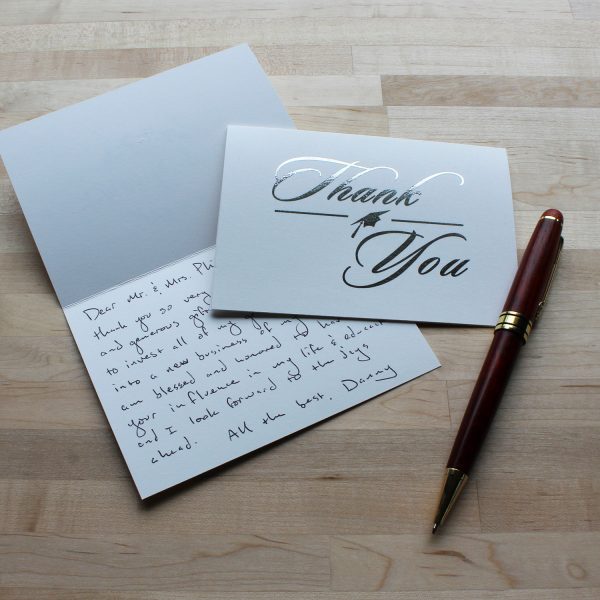 Thank
You
Dear Mr. & Mrs. Ph
thank you so very
and generous gift
to invest all of my
into a new business of my
am blessed and honored to
your influence in my life &
and I look forward to the days
ahead. All the best, Danny